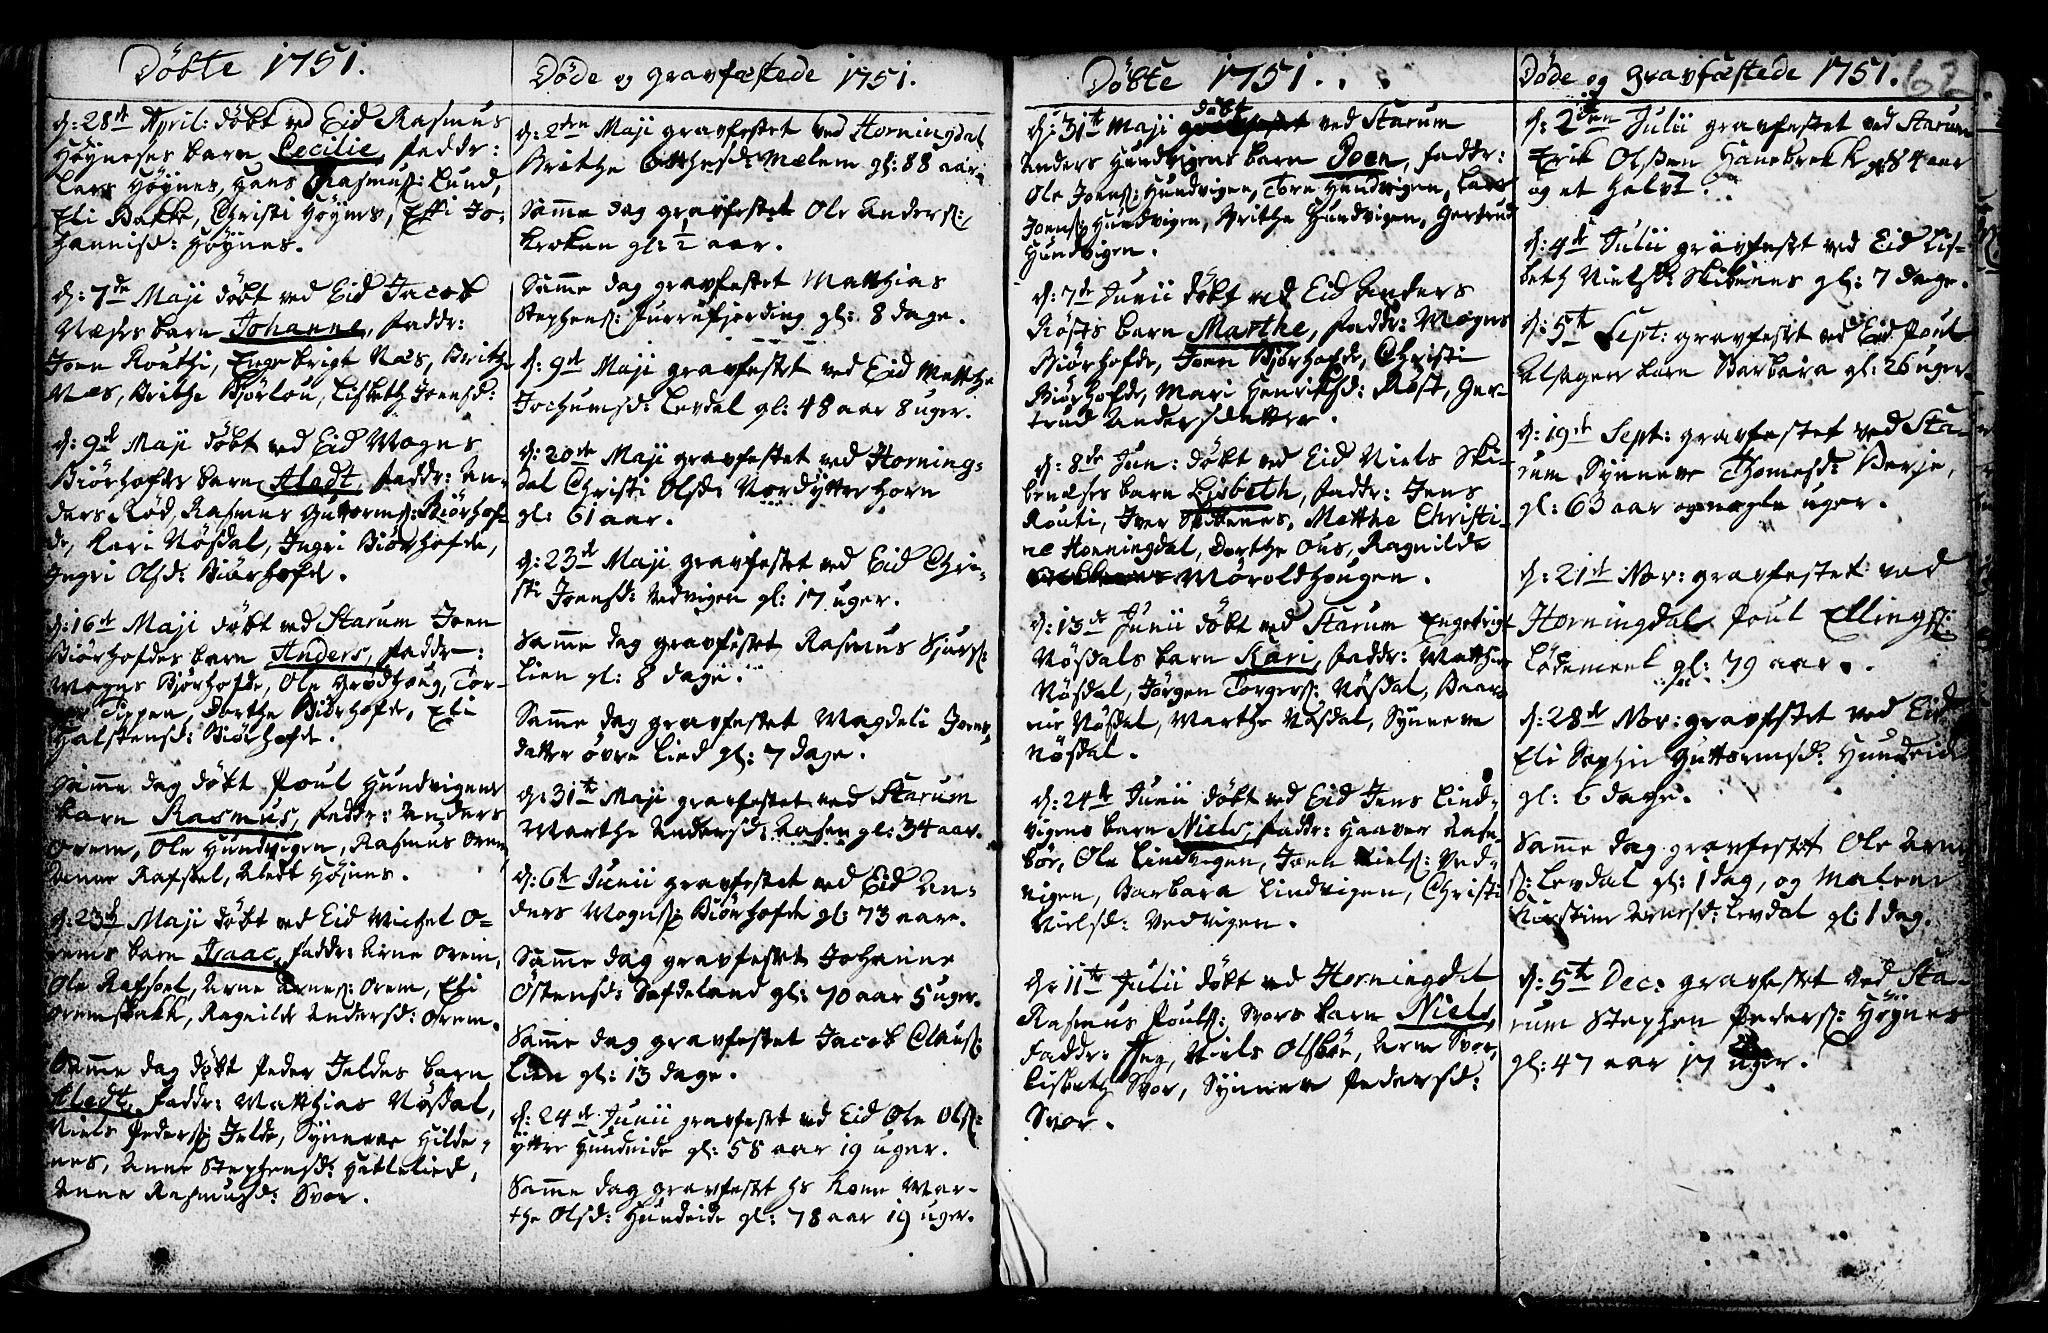 Döbte 1751.
d: 28de April: döbt ved Eid Rasmus
Höyneses barn Cecilie, faddr:
Lars Höynes, Hans Rasmus: Lund,
Eli Bakke, Christi Höynes, Effi Jo-
hannisd: Höynes.
d: 7de Maji döbt ved Eid Jacob
Næsses barn Johanne, faddr:
Joen Routhi, Engebrigt Næs, Brithe
Næs, Brithe Bjørlou, Lisbeth Joensd:
d: 9de Maji döbt ved Eid Mogns
Biörhofdes barn Aladt, faddr: An-
ders Röd, Rasmus Guttorms: Biörhof-
de, Kari Nösdal, Ingri Biörhofde,
Ingri Olsd: Biörhofde.
d: 16de Maji döbt ved Starum Joen
Biörhofdes barn Anders, faddr:
Mogns Bjørhofde, Ole Grødhoug, Tor-
Tippen, Dorthe Biörhofde, Eli
Halstensd: Biörhofde.
Samme dag döbt Poul Hundvigens
barn Rasmus, faddr: Anders
Orem, Ole Hundvigen, Rasmus Orem
Anne Rafstel, Aledt Höjnes.
d: 23de Maji döbt ved Eid Michel O-
rems barn Isaac, faddr: Arne Orem,
Ole Rafstel, Arne Arnes: Orem, Eli
Oremsbakk, Ragnilde Andersd: Orem.
Samme dag döbt Peder Jeldes barn
Aledt, faddr: Matthias Nösdal,
Niels Peders: Jelde, Synneve Hilde-
nes, Anne Stephensd: Hattelied,
Anne Rasmusd: Svor.
Döde og gravfæstede 1751.
d: 2den Maji gravfestet ved Horningdal
Brithe Matthesd: Mælem gl: 88 aar.
Samme dag gravfestet Ole Anders:
Kroken gl: 1/2 aar.
Samme dag gravfestet Matthias
Stephens: Furrufjording gl: 8 dage.
d: 9de Maji gravfestet ved Eid Matthe
Jochumsd: Levdal gl: 48 aar 8 uger.
d: 20de Maji gravfestet ved Horning-
dal Christi Olsd: Nordytterhorn
gl: 61 aar.
d: 23de Maji gravfestet ved Eid Chri-
sti Joensd: Vedvigen gl: 17 uger.
Samme dag gravfestet Rasmus Sjurs:
Lien gl: 8 dage.
Samme dag gravfestet Magdeli Joens-
datter övre Lied gl: 7 dage.
d: 31te Maji gravfestet ved Starum
Marthe Andersd: Aasen gl: 34 aar.
d: 6te Junii gravfestet ved Eid An-
ders Mogns: Biörhofde gl: 73 aar.
Samme dag gravfestet Johanne
Östensd: Sefdeland gl: 70 aar 5 uger.
Samme dag gravfestet Jacob Claus:
Lien gl: 13 dage.
d: 24de Junii gravfestet ved Eid Ole Ols:
ytre Hundeide gl: 58 aar 19 uger.
Samme dag gravfestet hs kone Mar-
the Olsd: Hundeide gl: 78 aar 19 uger.
Döbte 1751.
d: 31te Maji döbt ved Starum
Anders Hundvigens barn Joen, faddr:
Ole Joens: Hundvigen, Tore Hundvigen, Lars
Joens: Hundvigen, Brithe Hundvigen, Gertrud
Hundvigen.
d: 7de Junii döbt ved Eid Anders
Rösts barn Marthe, faddr: Mogns
Biörhofde, Joen Bjørhofde, Christi
Biörhofde, Mari Henrichsd: Röst, Ger-
trud Andersdatter.
d: 8de Jun: döbt ved Eid Niels Ski-
beneses barn Lisbeth, faddr: Jens
Routi, Iver Skibenes, Metthe Christi-
ne Horningdal, Dorthe Ous, Ragnilde
Möroldhougen.
d: 13de Junii döbt ved Starum Engebrigt
Nösdals barn Kari, faddr: Matthias
Nösdal, Jørgen Torgers: Nösdal, Baar-
nie Nösdal, Marthe Nösdal, Synneve
Nösdal.
d: 24de Junii döbt ved Eid Jens Lind-
vigens barn Niels, faddr: Haaver Aase-
bör, Ole Lindvigen, Joen Niels: Ved-
vigen, Barbara Lindvigen, Christi
Nielsd: Vedvigen.
d: 11te Julii döbt ved Horningdal
Rasmus Pouls: Svors barn Niels,
faddr: Jeg, Niels Olsböe, Arne Svor,
Lisbeth Svor, Synneve Pedersd:
Svor.
Döde og gravfæstede 1751. 62
d: 2den Julii gravfestet ved Starum
Erik Olssen Hanebrekk gl: 84 aar
og et halvt.
d: 4de Julii gravfestet ved Eid Lis-
beth Nielsd: Skibenes gl: 7 dage.
d: 5te Sept: gravfestet ved Eid Poul
Alsagers barn Barbara gl: 26 uger.
d: 19de Sept: gravfestet ved Sta-
rum Synneve Thomesd: Berje,
gl: 63 aar og nogle uger.
d: 21de Nov: gravfestet ved
Horningdal Poul Ellings:
Lödemeel gl: 79 aar.
d: 28de Nov: gravfestet ved Eid
Eli Sophie Guttormsd: Hundeide
gl: 6 dage.
Samme dag gravfestet Ole Arne
s: Levdal gl: 1 dag, og Malene
Kirstine Arnesd: Levdal gl: 1 dag.
d: 5te Dec: gravfestet ved Sta-
rum Stephen Peders: Höynes
gl: 47 aar 17 uger.